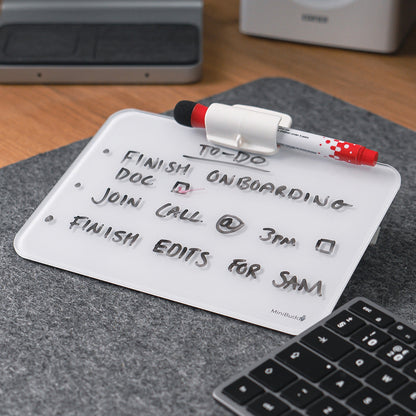 TO-DO
• FINISH ONBOARDING
DOC ☑
• JOIN CALL @ 3PM ☐
• FINISH EDITS FOR SAM